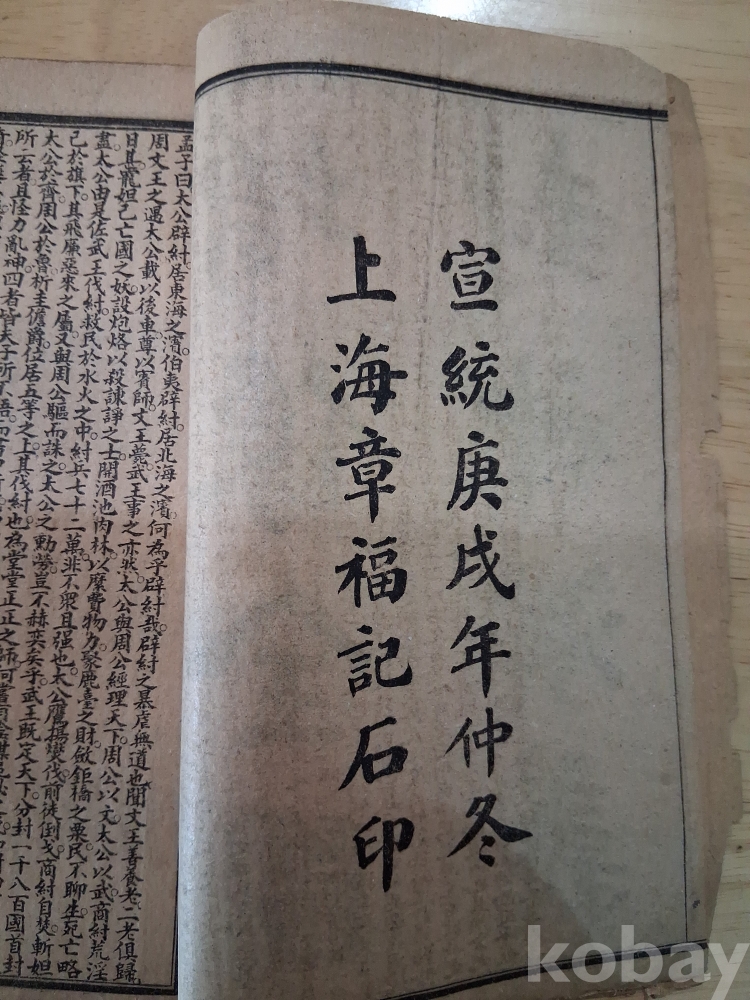 宣統庚戌年仲冬
上海章福記石印
孟子曰太公辟紂居東海之濱伯夷辟紂居北海之濱何為乎辟紂哉辟紂之暴虐無道也聞文王善養老二老俱歸
周文王之遇太公載以後車尊以賓師文王薨武王事之亦然太公與周公經理天下周公以文太公以武商紂荒淫
日甚寵妲己亡國之妖設炮烙以殺諫諍之士開酒池肉林以糜費物力聚鹿臺之財斂鉅橋之粟民不聊生死亡略
盡太公由是佐武王伐紂救民於水火之中紂兵七十二萬非不衆且强也太公鷹揚燮伐前徒倒戈商紂自焚斬妲
己於旗下其飛廉惡來之屬又與周公驅而誅之太公之勳勞豈不赫奕矣乎武王既定天下分封一千八百國首封
太公於齊周公於魯析圭儋爵位居五等之上其伐紂也為堂堂正正之師
所云者且怪力亂神四者皆夫子所不語
kobay